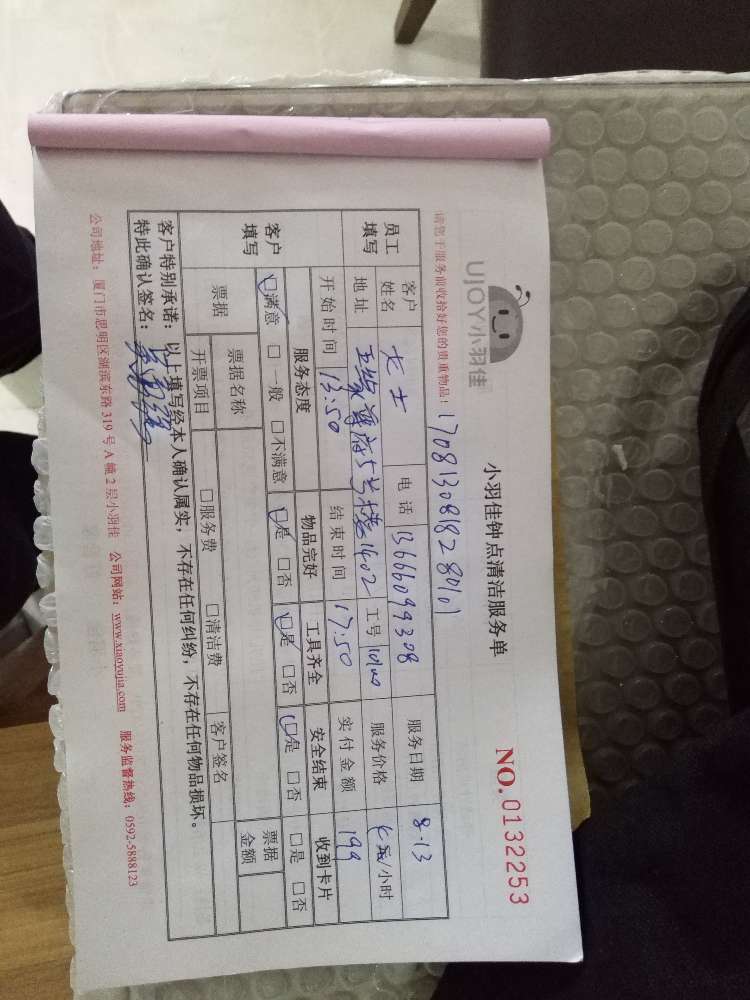 UJOY小羽佳
小羽佳钟点清洁服务单
NO.0132253
请您于服务前收拾好您的贵重物品！
1708130818280101
员工填写
客户姓名
电话 13666099308
服务日期 8.13
地址
尊府5号楼1402
工号
服务价格
元/小时
开始时间 13:50
结束时间 17:50
实付金额 199
客户填写
服务态度 物品完好 工具齐全 安全结束 收到卡片
□满意 □一般 □不满意 □是 □否 □是 □否 □是 □否 □是 □否
票据 票据名称 票据金额
开票项目 □服务费 □清洁费 客户签名
客户特别承诺：以上填写经本人确认属实，不存在任何纠纷，不存在任何物品损坏。
特此确认签名：
公司地址：厦门市思明区湖滨东路319号A幢2层小羽佳 公司网站：www.xiaoyujia.com 服务监督热线：0592-5888123